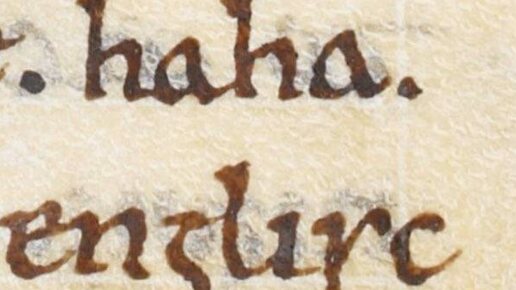 . haha.
engliſc